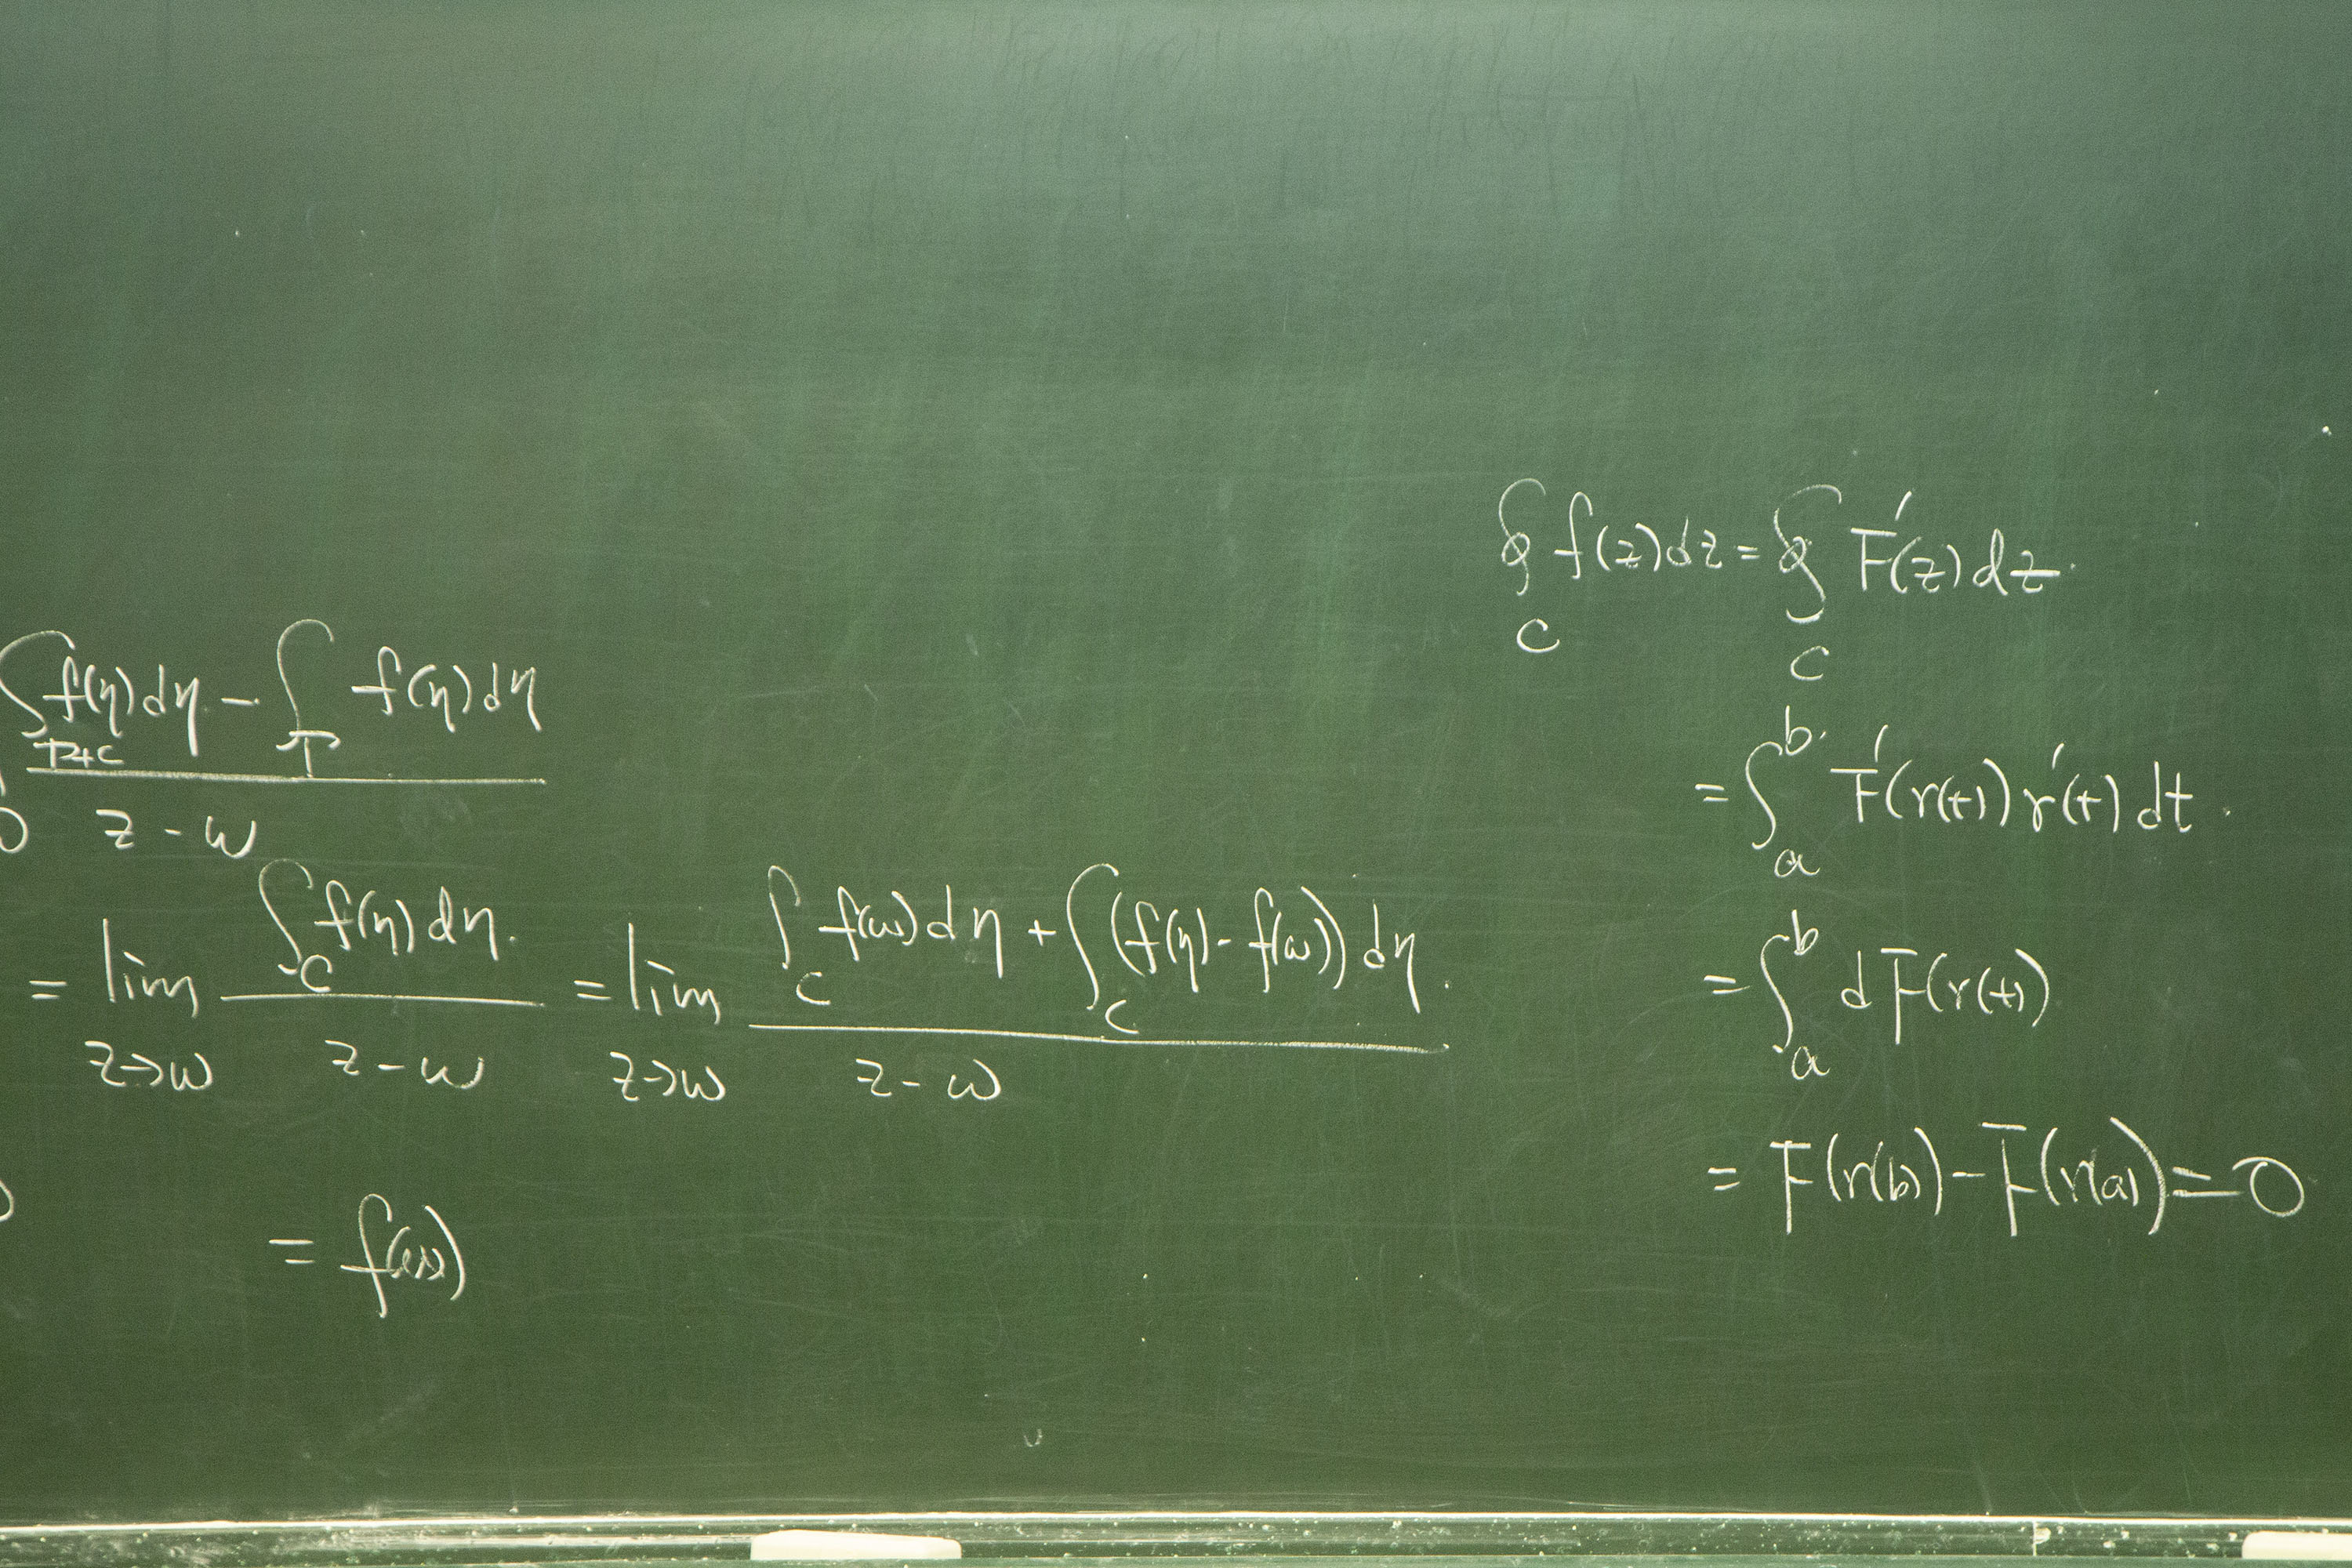 ∫_{P+C} f(η)dη - ∫_P f(η)dη
z - w
= lim_{z→w} ∫_C f(η)dη. / z - w = lim_{z→w} ∫_C f(w)dη + ∫_C (f(η) - f(w))dη. / z - w
= f(w)
∮_C f(z)dz = ∮_C F'(z)dz.
= ∫_a^b F'(r(t))r'(t)dt.
= ∫_a^b dF(r(t))
= F(r(b)) - F(r(a)) = 0